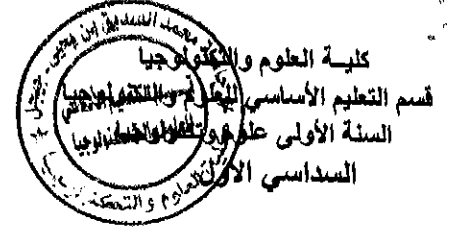 كليـة العلوم والتكنولوجيا
قسم التعليم الأساسي للعلوم والتكنولوجيا
السنة الأولى علوم وتكنولوجيا
السداسي الأول
محمد الصديق بن يحيى - جيجل